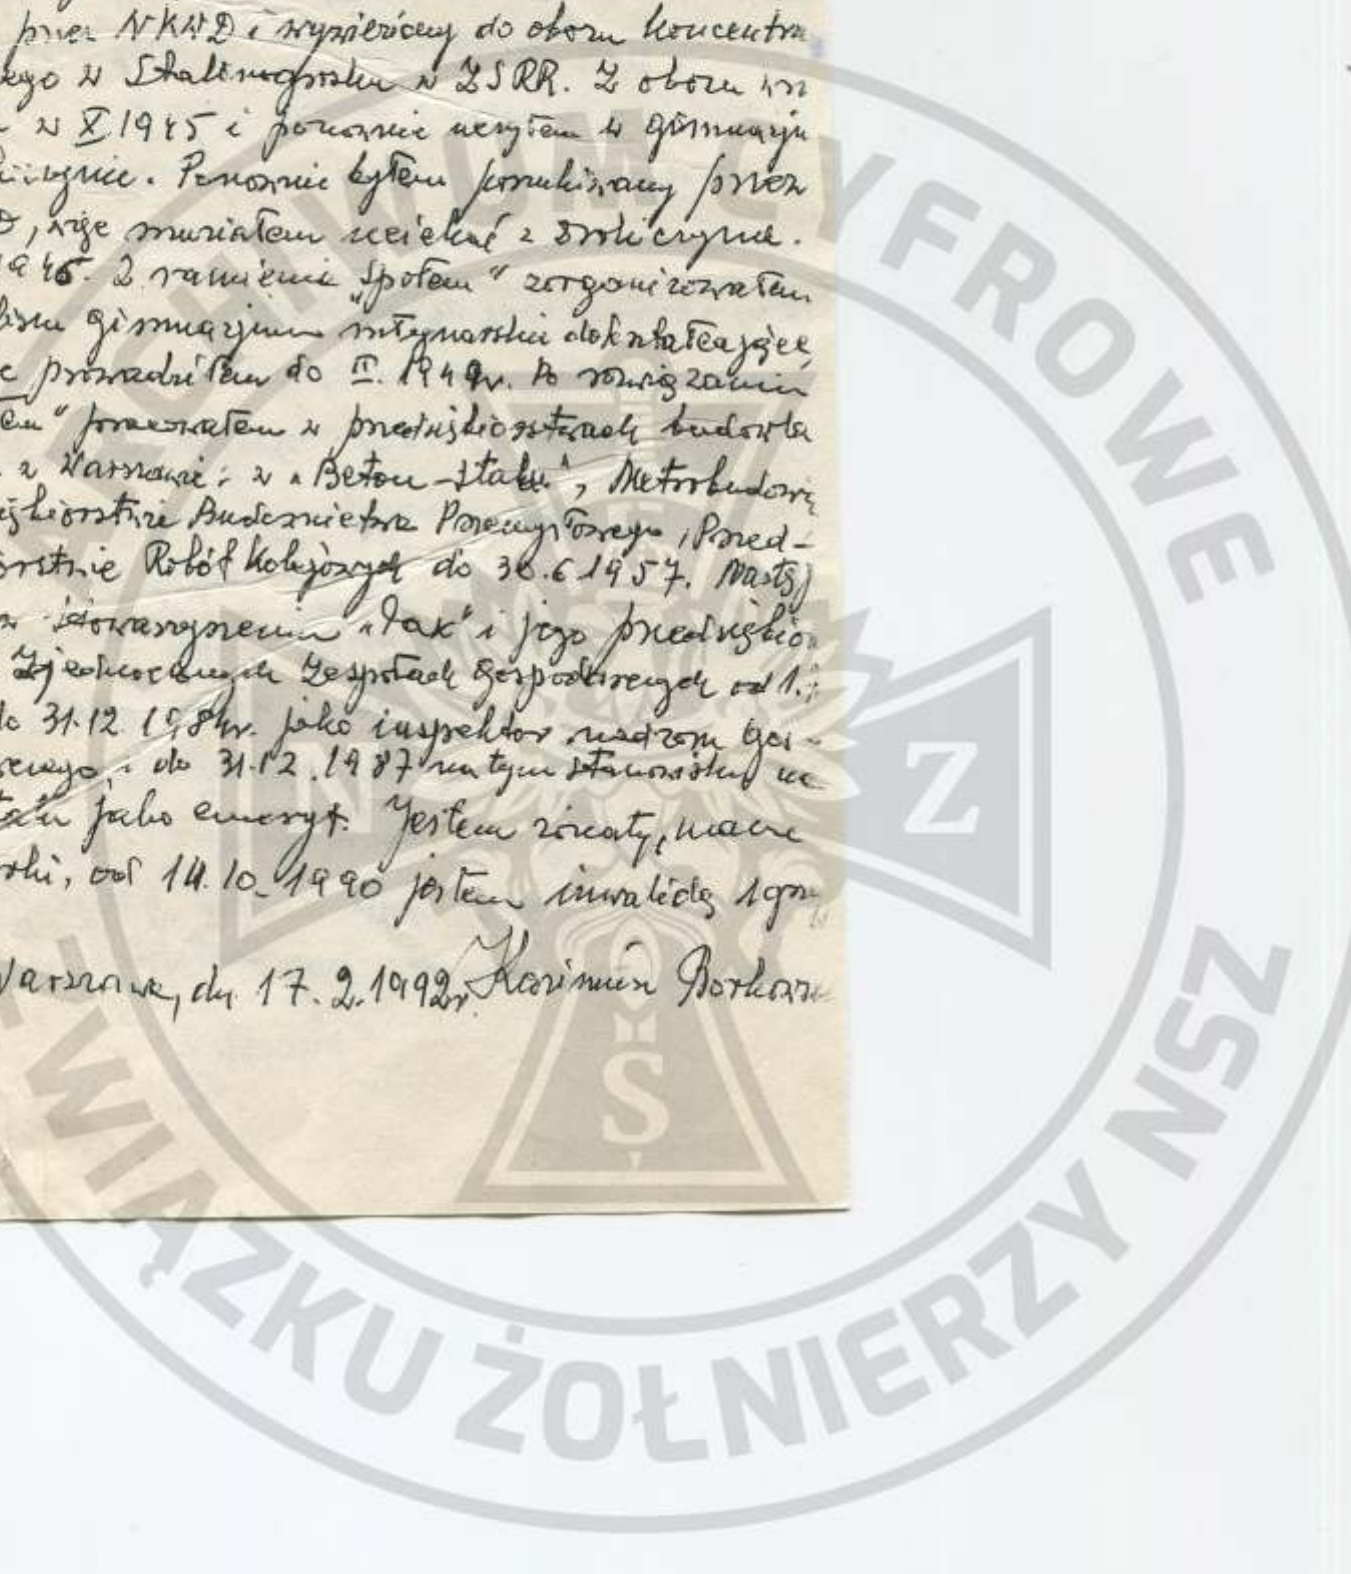 przez NKWD i wywieziony do obozu koncentra
ego w Stalinogrosku w ZSRR. Z obozu
w X 1945 i ponownie uczyłem w gimnazju
Ponownie byłem poszukiwany przez
, więc musiałem uciekać z Drohiczyna.
Z ramienia "Społem" zorganizowałem
gimnazjum młynarskie dokształcające,
prowadziłem do II. 1949r. Po rozwiązaniu
em" pracowałem w przedsiębiorstwach budowla
z Warszawie: w "Beton-Stalu", Metrobudowie
iębiorstwie Budownictwa Przemysłowego, Przed-
orstwie Robót Kolejowych do 30.6 1957. Nastę
w Stowarzyszeniu "Pax" i jego przedsiębio
Zjednoczonych Zespołach Gospodarczych od 1.
do 31.12 1984r. jako inspektor nadzoru gos-
rczego, i do 31.12.1987 na tym stanowisku na
jako emeryt. Jestem żonaty, mam
rki, od 14.10.1990 jestem inwalidą 1 gru
Warszawa, dn 17.2.1992r. Kazimierz Borkows
ARCHIWUM CYFROWE
ZWIĄZKU ŻOŁNIERZY NSZ
N
Z
S